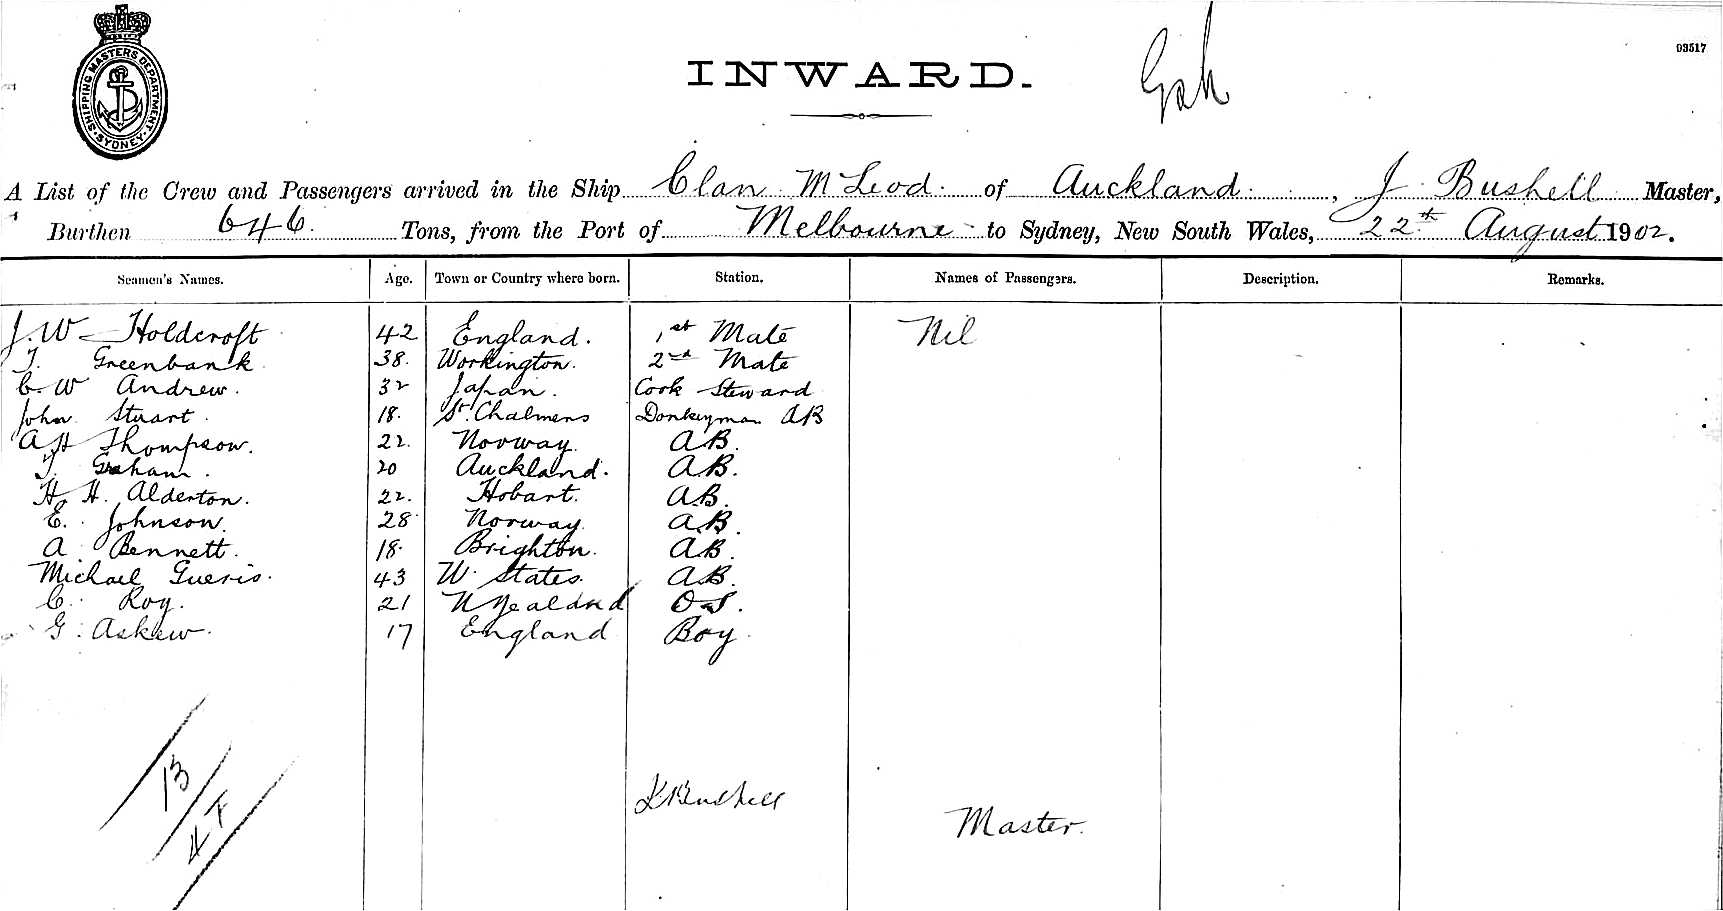 SHIPPING MASTERS DEPARTMENT. SYDNEY
93517
INWARD.
A List of the Crew and Passengers arrived in the Ship Clan McLeod of Auckland, J Bushell Master,
Burthen 646 Tons, from the Port of Melbourne to Sydney, New South Wales, 22nd August 1902.
Seamen's Names. Age. Town or Country where born. Station. Names of Passengers. Description. Remarks.
J. W Holdcroft 42 England. 1st Mate Nil
T. Greenbank 38. Workington. 2nd Mate
C. W Andrew. 32 Japan. Cook Steward
John Stuart. 18. Chalmers Donkeyman AB
A H Thompson. 22. Norway. AB.
T. Graham. 20 Auckland. AB.
H. H. Alderton. 22. Hobart. AB.
E. Johnson. 28 Norway. AB.
A Bennett. 18. Brighton. AB.
Michael Gueris. 43 W. States. AB.
C. Roy. 21 N Zealand OS.
G. Askew. 17 England Boy.
13
J. Bushell
Master.